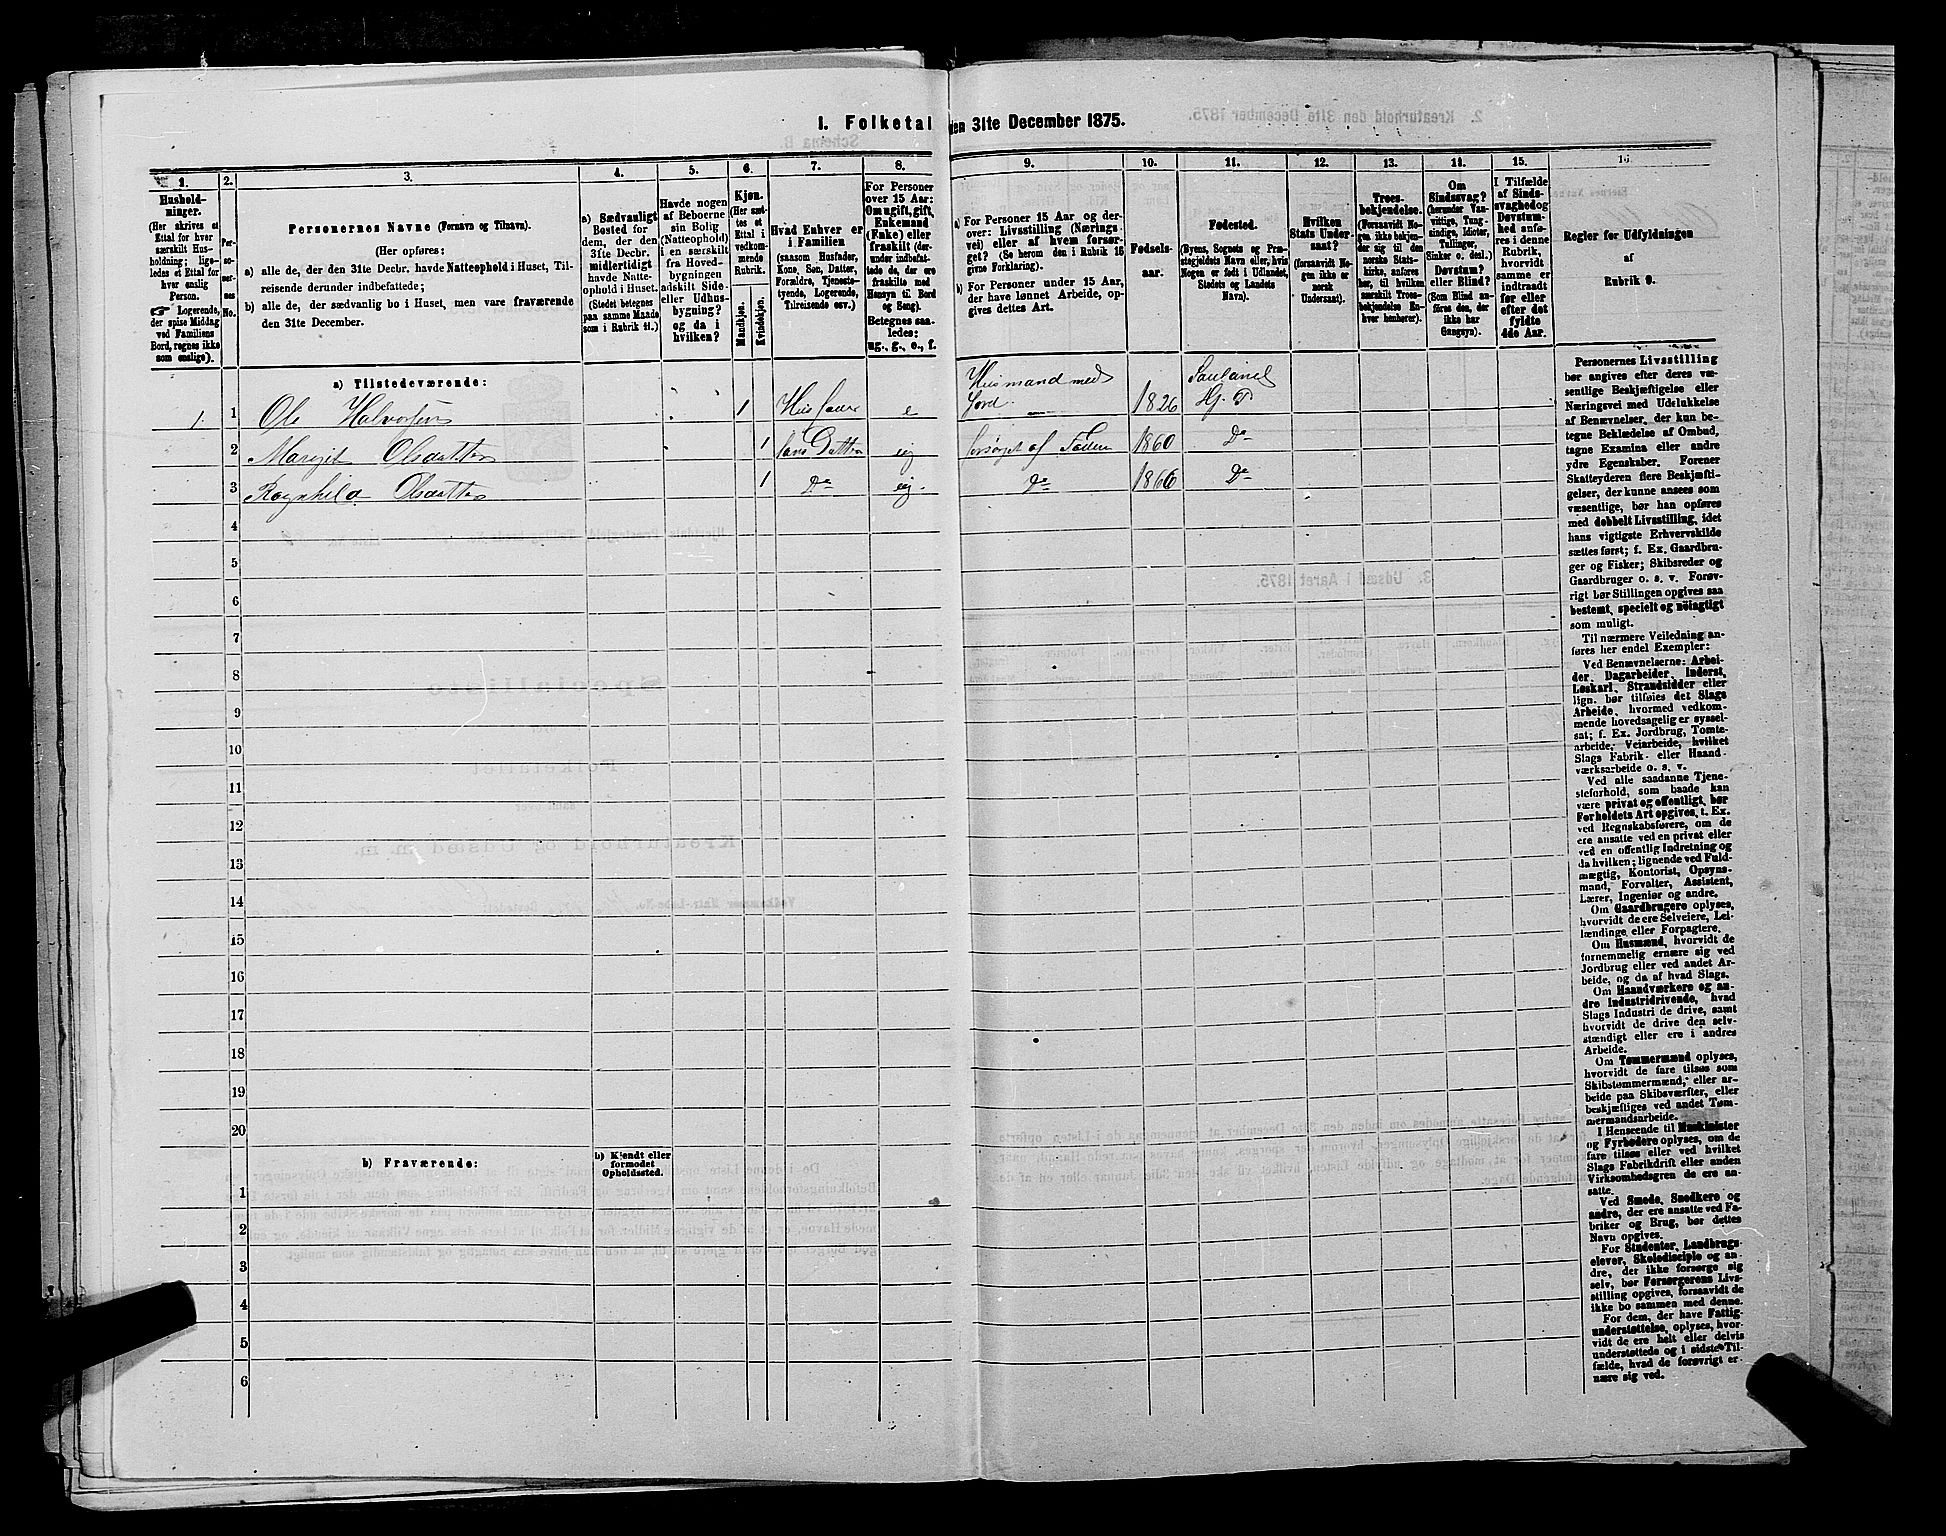 1. Folketal den 31te December 1875.
1.
Hushold-
ninger.
(Her skrives et
Ettal for hver
særskilt Hus-
holdning; lige-
ledes et Ettal for
hver enslig
Person.
☞ Logerende,
der spise Middag
ved Familiens
Bord, regnes ikke
som enslige).
2.
Per-
so-
ner-
nes
No.
3.
Personernes Navne (Fornavn og Tilnavn).
(Her opføres:
a) alle de, der den 31te Decbr. havde Natteophold i Huset, Til-
reisende derunder indbefattede;
b) alle de, der sædvanlig bo i Huset, men vare fraværende
den 31te December.
4.
a) Sædvanligt
Bosted for
dem, der den
31te Decbr.
midlertidigt
havde Natte-
ophold i Huset.
(Stedet betegnes
paa samme Maade
som i Rubrik 11.)
5.
Havde nogen
af Beboerne
sin Bolig
(Natteophold)
i en særskilt
fra Hoved-
bygningen
adskilt Side-
eller Udhus-
bygning?
og da i
hvilken?
6.
Kjøn.
(Her sæt-
tes et
Ettal i
vedkom-
mende
Rubrik.
Mandkjøn.
Kvindekjøn.
7.
Hvad Enhver er
i Familien
(saasom Husfader,
Kone, Søn, Datter,
Forældre, Tjeneste-
tyende, Logerende,
Tilreisende osv.)
8.
For Personer
over 15 Aar:
Om ugift, gift,
Enkemand
(Enke) eller
fraskilt (der-
under indbefat-
tede de, der ere
fraskilte med
Hensyn til Bord
og Seng).
Betegnes saa-
ledes:
ug., g., e., f.
9.
a) For Personer 15 Aar og der-
over: Livsstilling (Nærings-
vei) eller af hvem forsør-
get? (Se herom den i Rubrik 16
givne Forklaring).
b) For Personer under 15 Aar,
der have lønnet Arbeide, op-
gives dettes Art.
10.
Fødsels-
aar.
11.
Fødested.
(Byens, Sognets og Præ-
stegjeldets Navn eller, hvis
Nogen er født i Udlandet,
Stedets og Landets
Navn).
12.
Hvilken
Stats Under-
saat?
(forsaavidt No-
gen ikke er
norsk
Undersaat).
13.
Troes-
bekjendelse.
(Forsaavidt No-
gen ikke bekjen-
der sig til den
norske Stats-
kirke, anføres
her, til hvilken
særskilt Troes-
bekjendelse En-
hver henhører).
14.
Om
Sindssvag?
(herunder Van-
vittige, Tung-
sindige, Idioter,
Tullinger,
Sinker o. desl.)
Døvstum?
eller Blind?
(Som Blind an-
føres den, der
ikke har
Gangsyn).
15.
I Tilfælde
af Sinds-
svaghed og
Døvstum-
hed anfø-
res i denne
Rubrik,
hvorvidt
samme er
indtraadt
før eller
efter det
fyldte
4de Aar.
16.
Regler for Udfyldningen
af
Rubrik 9.
a) Tilstedeværende:
1. 1 Ole Halvorsen 1 Husfader e Husmand med Jord. 1826 Sauland Hj. P
2 Margit Olsdatter 1 hans Datter ug forsørget af Faderen 1860 Do
3 Ragnhild Olsdatter 1 Do ug. Do 1866 Do
4
5
6
7
8
9
10
11
12
13
14
15
16
17
18
19
20
b) Fraværende:
b) Kjendt eller
formodet
Opholdssted.
1
2
3
4
5
6
Personernes Livsstilling
bør angives efter deres væ-
sentlige Beskjæftigelse eller
Næringsvei med Udelukkelse
af Benævnelser, der kun be-
tegne Beklædelse af Ombud,
tagne Examina eller andre
ydre Egenskaber. Forener
Skatteyderen flere Beskjæfti-
gelser, der kunne ansees som
væsentlige, bør han opføres
med dobbelt Livsstilling, idet
hans vigtigste Erhvervskilde
sættes først; f. Ex. Gaardbru-
ger og Fisker; Skibsreder og
Gaardbruger o. s. v. Forøv-
rigt bør Stillingen opgives saa
bestemt, specielt og nöiagtigt
som muligt.
Til nærmere Veiledning an-
føres her endel Exempler:
Ved Benævnelserne: Arbei-
der, Dagarbeider, Inderst,
Løskarl, Strandsidder eller
lign. bør tilføies det Slags
Arbeide, hvormed vedkom-
mende hovedsagelig er syssel-
sat; f. Ex. Jordbrug, Tomte-
arbeide, Veiarbeide, hvilket
Slags Fabrik- eller Haand-
værksarbeide o. s. v.
Ved alle saadanne Tjene-
steforhold, som baade kan
være privat og offentligt, bør
Forholdets Art opgives, t. Ex.
ved Regnskabsførere, om de
ere ansatte ved en privat eller
ved en offentlig Indretning og
da hvilken; lignende ved Fuld-
mægtig, Kontorist, Opsyns-
mand, Forvalter, Assistent,
Lærer, Ingeniør og andre.
Om Gaardbrugere oplyses,
hvorvidt de ere Selveiere, Lei-
lændinge eller Forpagtere.
Om Husmænd, hvorvidt de
fornemmelig ernære sig ved
Jordbrug eller ved andet Ar-
beide, og da af hvad Slags.
Om Haandværkere og an-
dre Industridrivende, hvad
Slags Industri de drive, samt
hvorvidt de drive den selv-
stændigt eller ere i andres
Arbeide.
Om Tømmermænd oplyses,
hvorvidt de fare tilsøs som
Skibstømmermænd, eller ar-
beide paa Skibsværfter, eller
beskjæftiges ved andet Tøm-
mermandsarbeide.
I Henseende til Maskinister
og Fyrbødere oplyses, om de
fare tilsøs eller ved hvilket
Slags Fabrikdrift eller anden
Virksomhedsgren de ere an-
satte.
Ved Smede, Snedkere og
andre, der ere ansatte ved Fa-
briker og Brug, bør dettes
Navn opgives.
For Studenter, Landbrugs-
elever, Skoledisciple og an-
dre, der ikke forsørge sig
selv, bør Forsørgerens Livs-
stilling opgives, forsaavidt de
ikke bo sammen med denne.
For dem, der have Fattig-
understøttelse, oplyses, hvor-
vidt de ere helt eller delvis
understøttede og i sidste Til-
fælde, hvad de forøvrigt er-
nære sig ved.